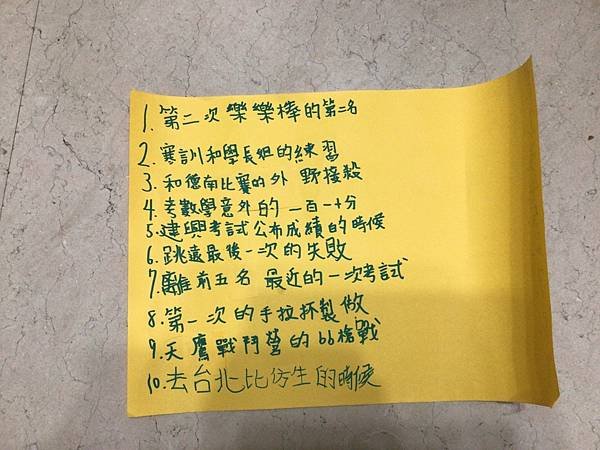 1. 第二次樂樂棒的第二名
2. 寒訓和學長姐的練習
3. 和德南比賽的外野接殺
4. 考數學意外的一百一十分
5. 建興考試公布成績的時候
6. 跳遠最後一次的失敗
7. 離前五名最近的一次考試
8. 第一次的手拉抔製做
9. 天鷹戰鬥營的bb槍戰
10. 去台北比仿生的時候